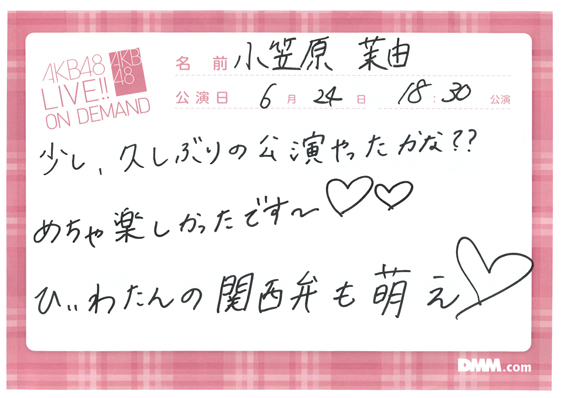 AKB48
LIVE!!
ON DEMAND
AKB
48
名前 小笠原 茉由
公演日 6月24日 18:30公演
少し、久しぶりの公演やったかな??
めちゃ楽しかったです〜♡♡
ひぃわたんの関西弁も萌え♡
DMM.com